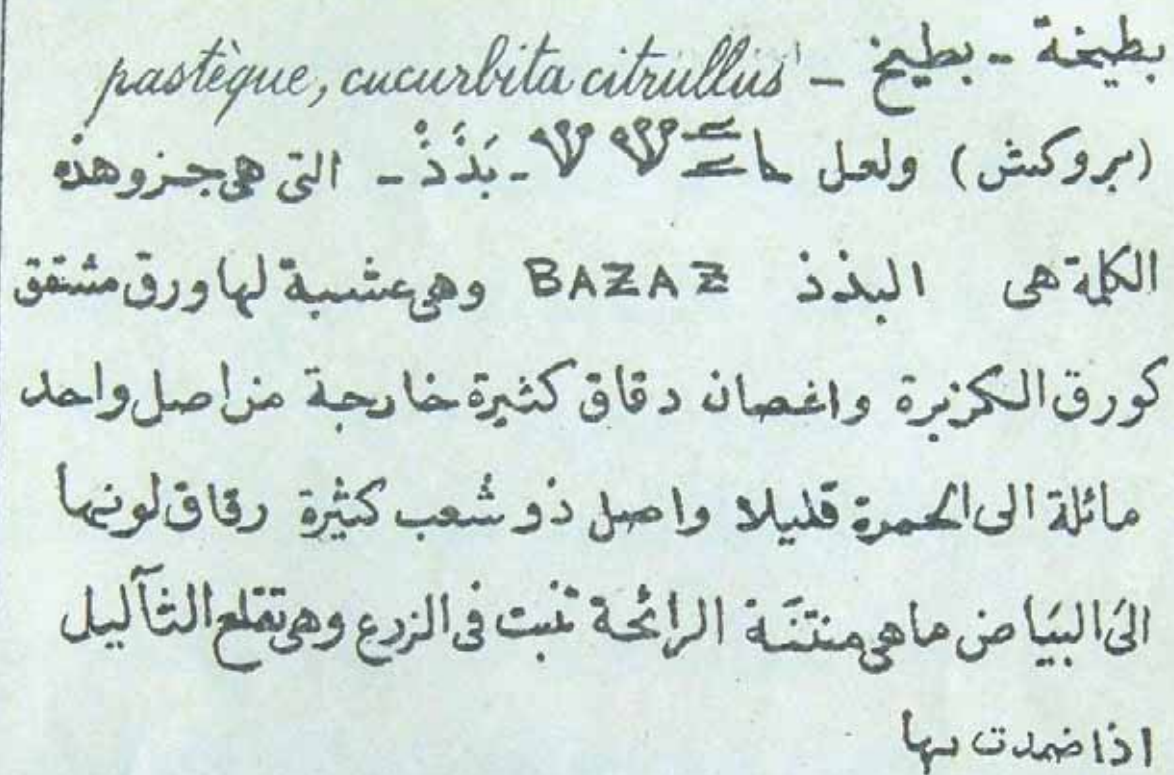 بطيخة - بطيخ - pastèque, cucurbita citrullus
(بروكش) ولعل - بَذَذْ - التى هى جزو هذه
الكلمة هى البذذ BAZAZ وهى عشبة لها ورق مشقق
كورق الكزبرة واغصان دقاق كثيرة خارجة من اصل واحد
مائلة الى الحمرة قليلا واصل ذو شعب كثيرة رقاق لونها
الىَ البيَاض ما هى منتنَة الرائحة تنبت فى الزرع وهى تقلع الثآليل
اذا ضمدت بها